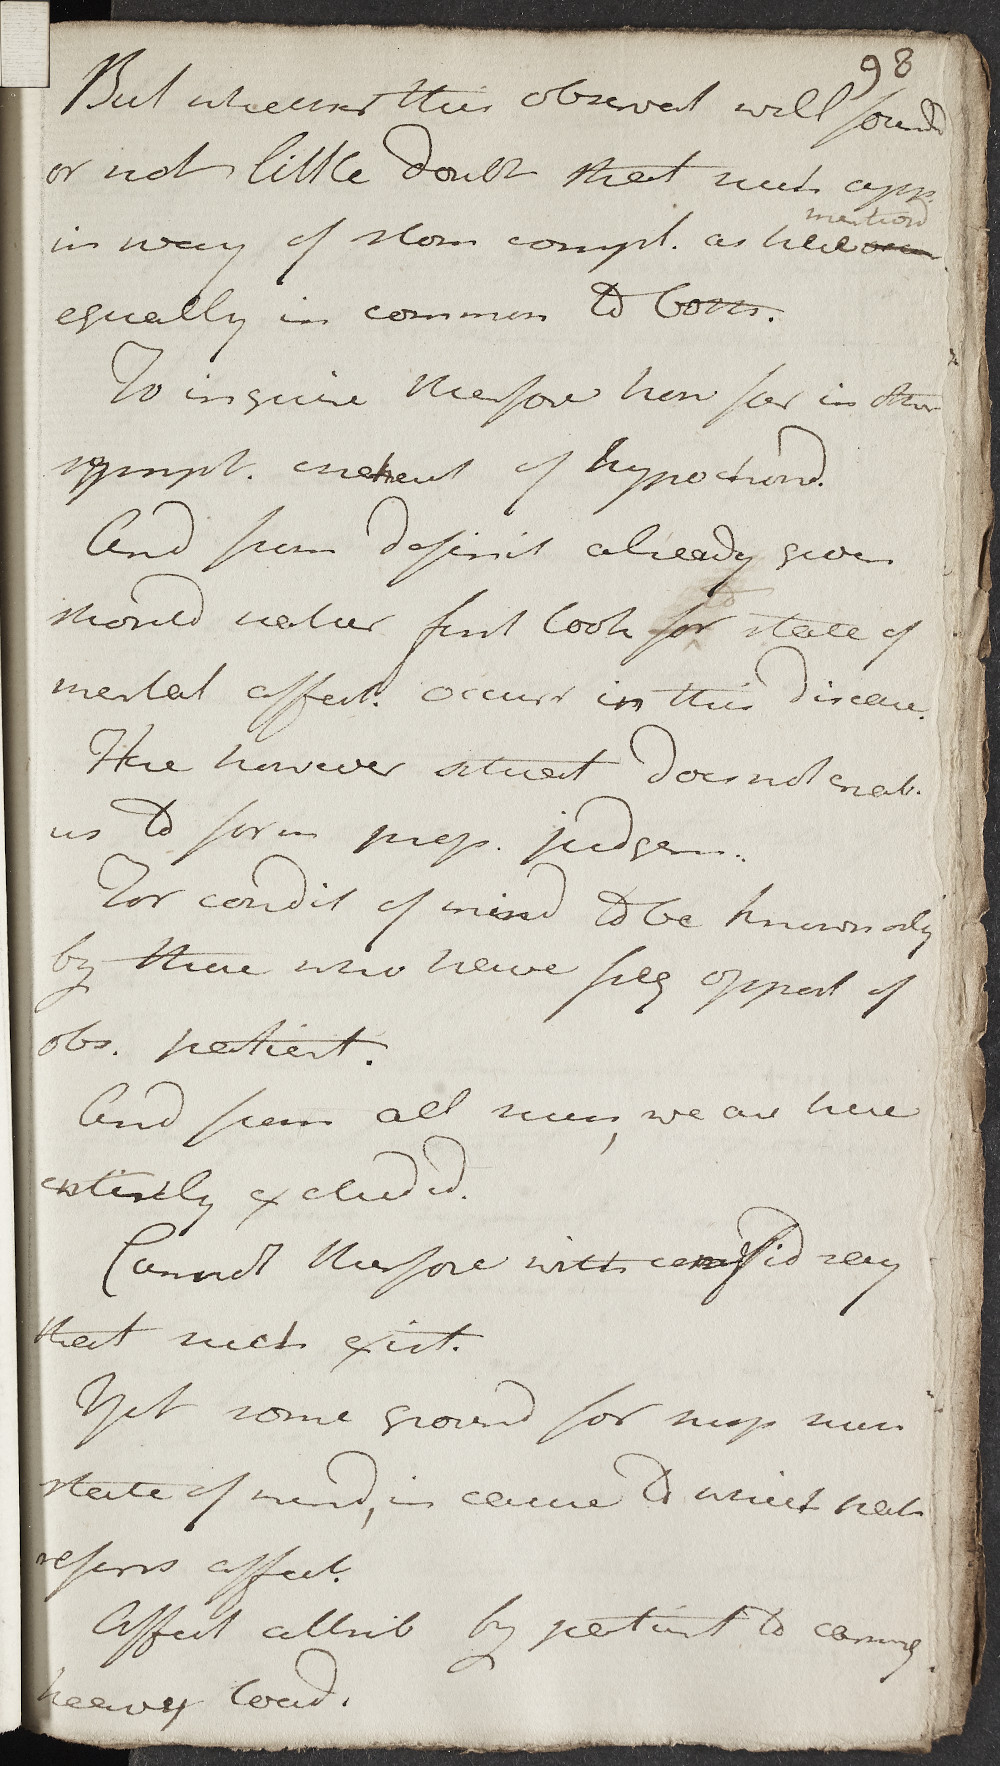 98
But whether this observat well found
or not little doubt that such app.
mention'd
in way of stom compt. as here
equally in common to both.
To inquire therefore how far in other
sympt. of hypochond.
And from definit already given
should natur first look for to state of
mental affect. occurr in this disease.
Here however situat does not enab.
us to form prop. judgem.
For condit of mind to be known only
by those who have freq opport of
obs. patient.
And from all such, we are here
entirely excluded.
Cannot therefore with confid say
that such exist.
Yet some ground for susp such
state of mind, in cause to which pat.
refers affect.
Affect attrib by patient to carrying
heavy load.